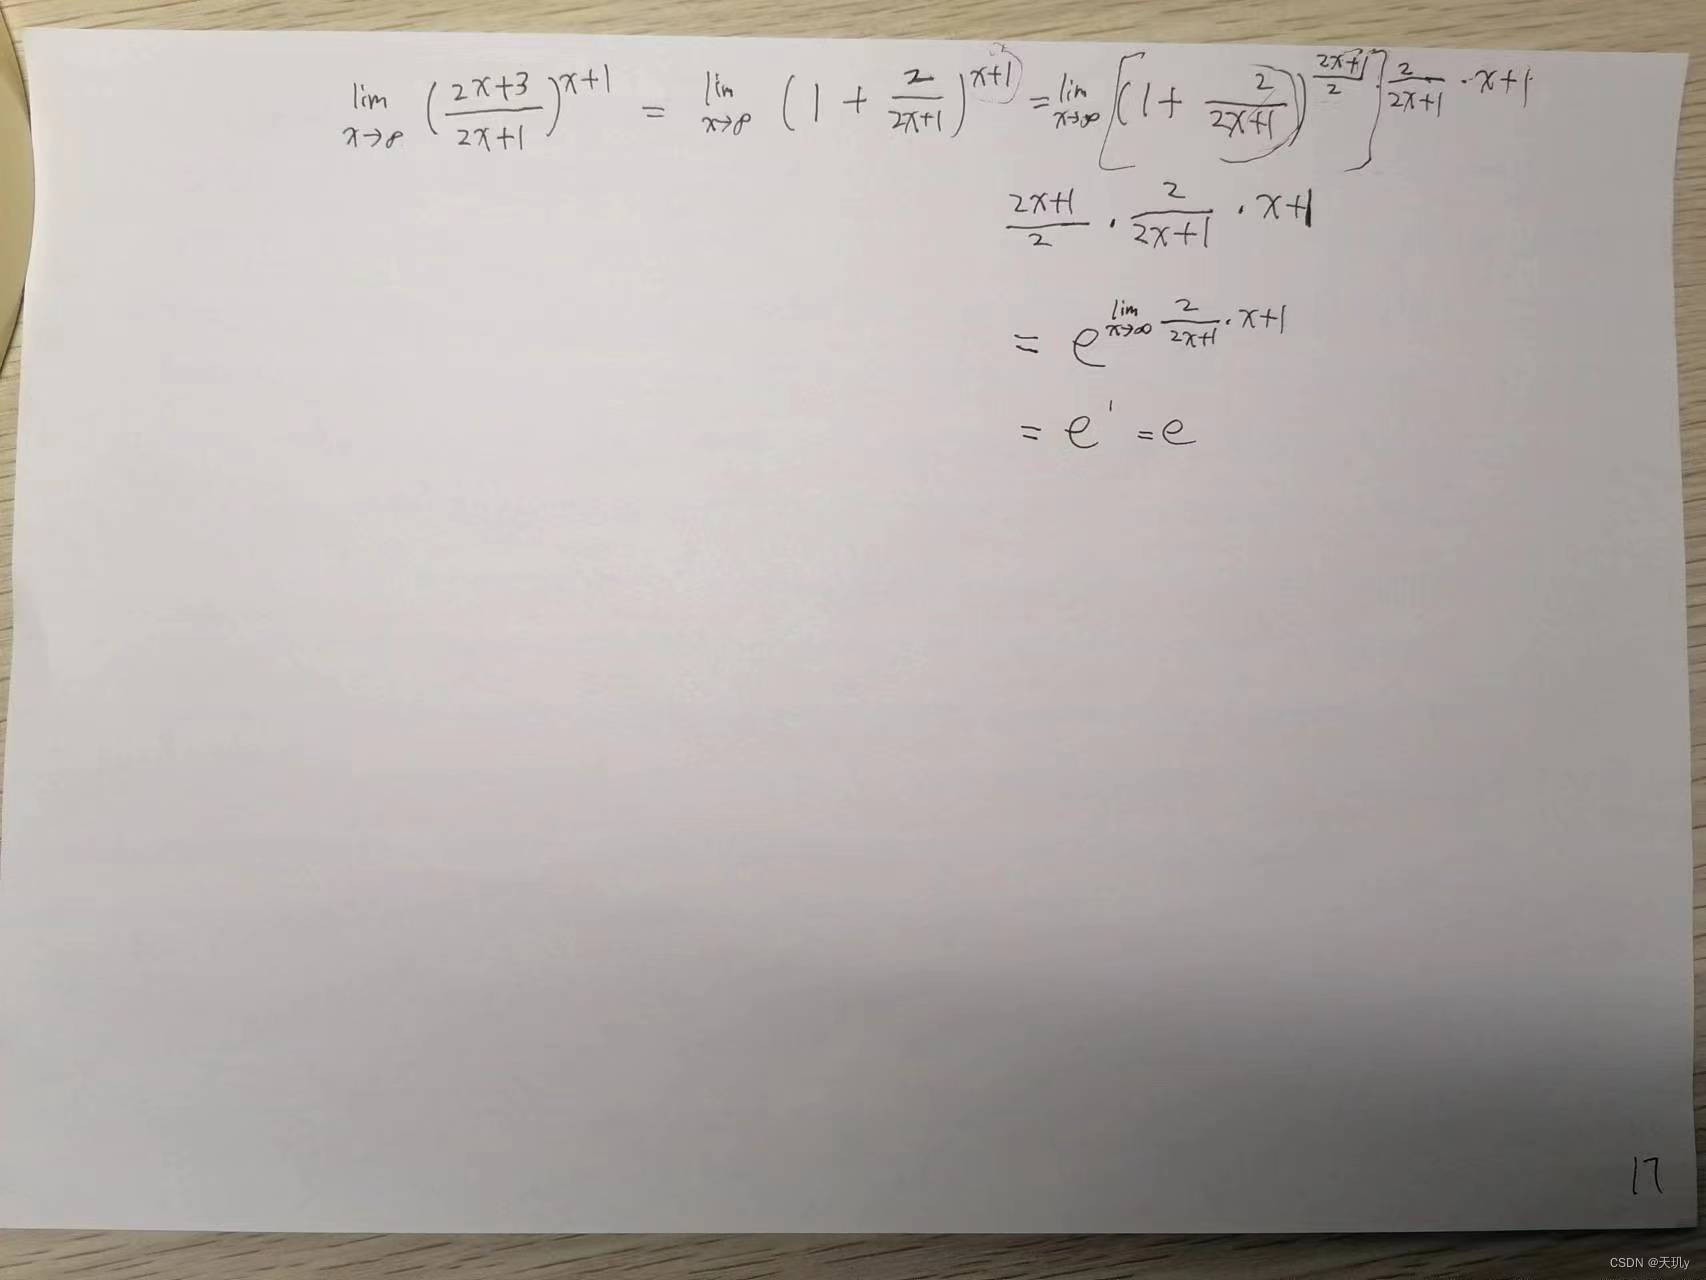 lim x→∞ (2x+3/2x+1)^x+1 = lim x→∞ (1 + 2/2x+1)^x+1 = lim x→∞ [(1 + 2/2x+1)^2x+1/2]^2/2x+1 · x+1
2x+1/2 · 2/2x+1 · x+1
= e^lim x→∞ 2/2x+1 · x+1
= e^1 = e
17
CSDN @天玑y